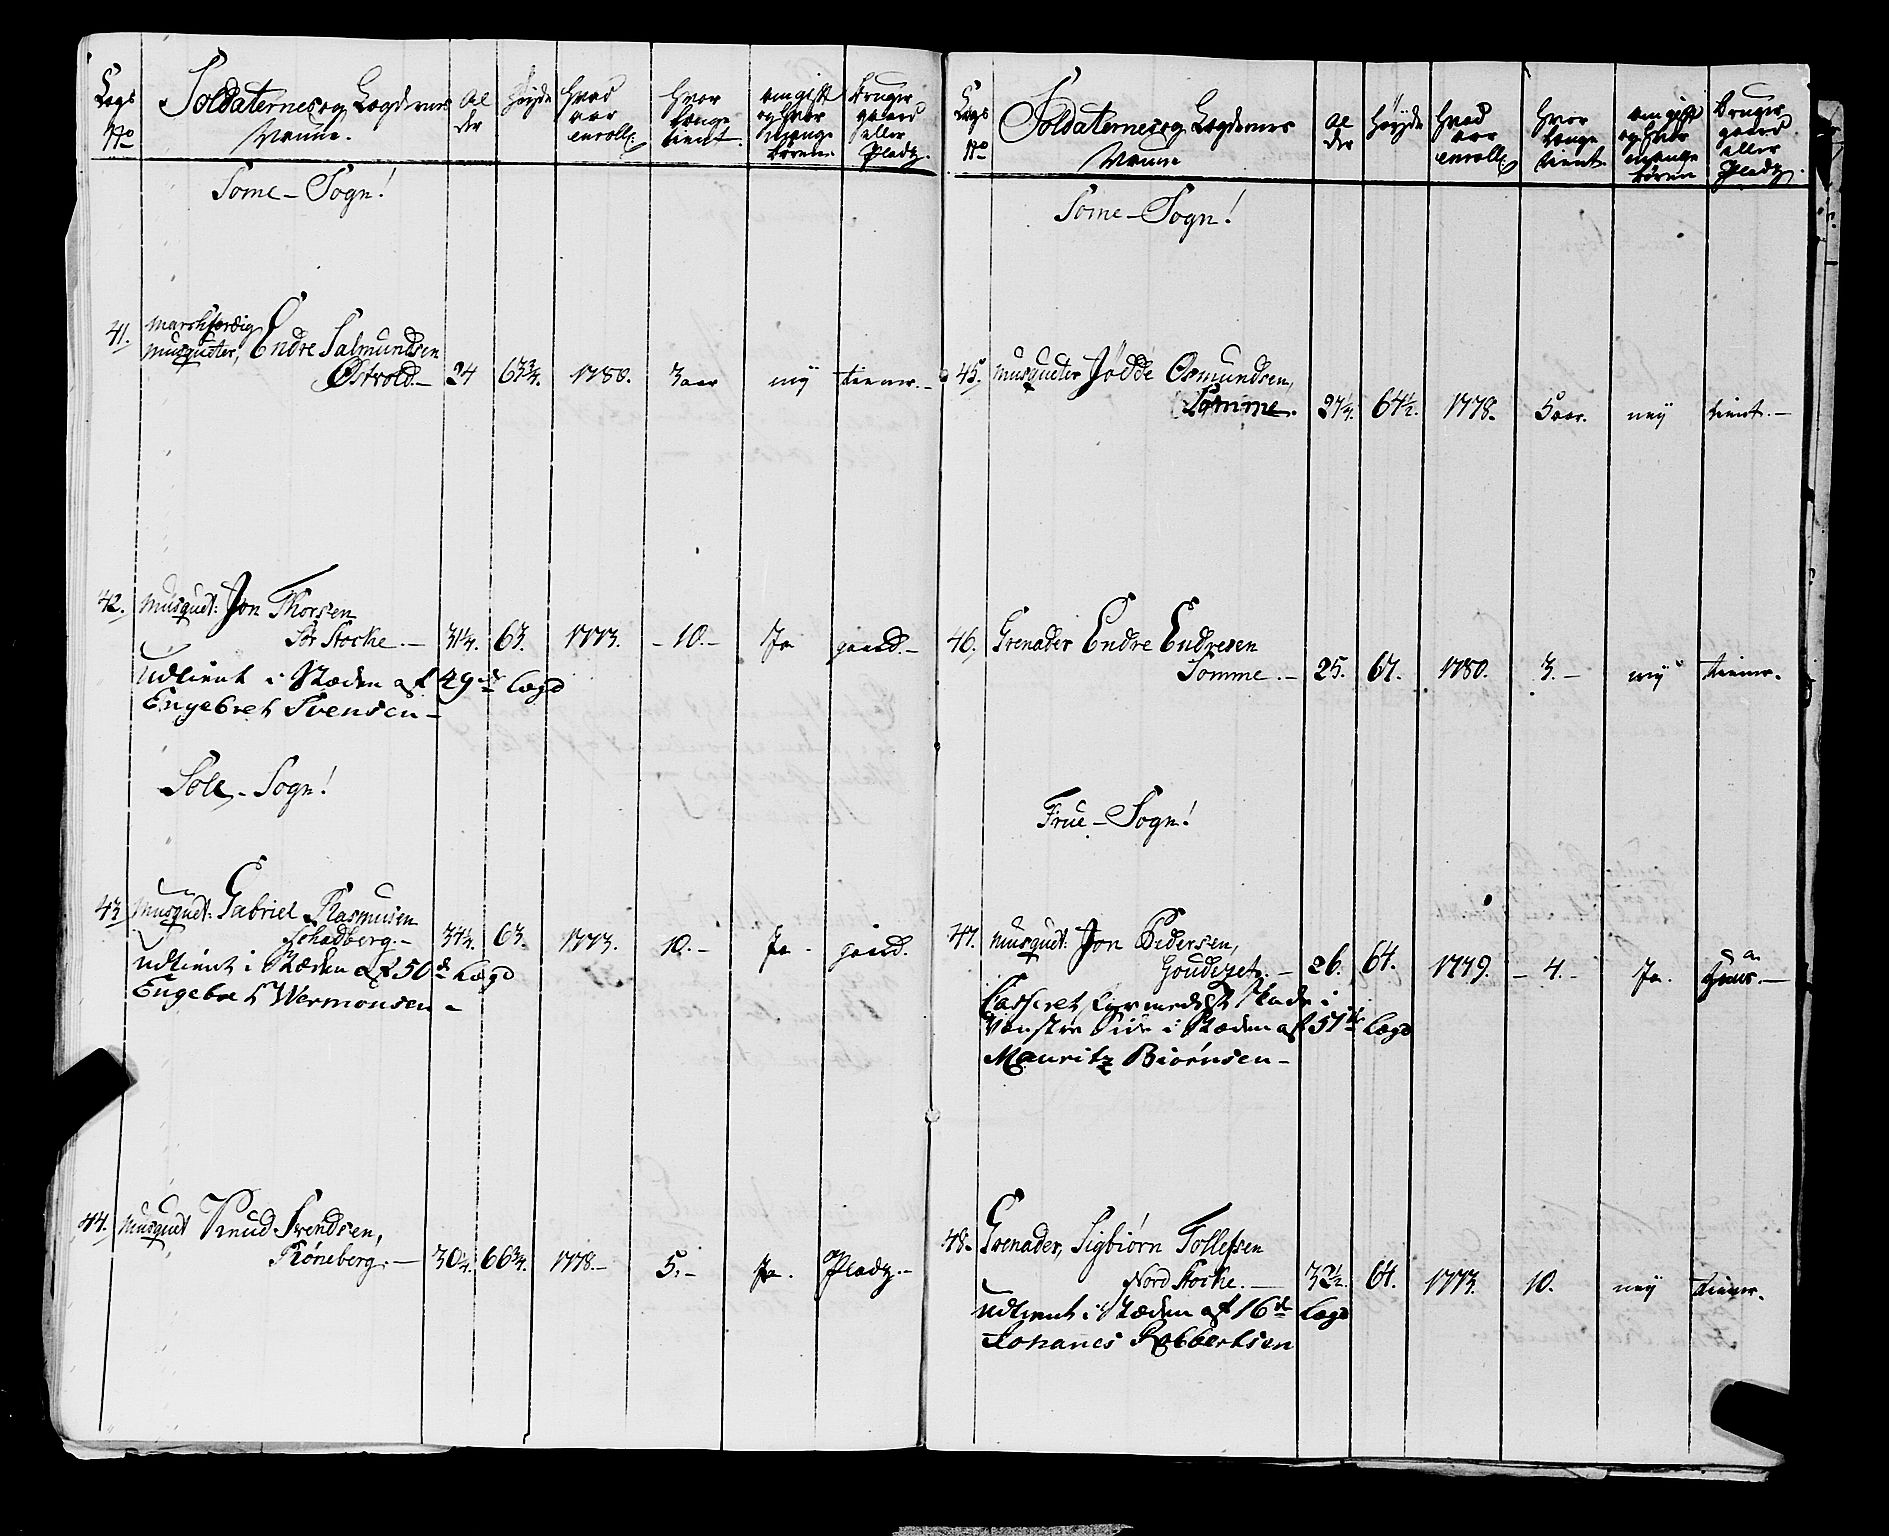 Legs No Soldaternes og Legdernes Navne. Alder Høyde Hvad aar enroll. Hvor længe tient. om gift og hvor mange børen Bruger gaard eller Pladtz.
Some - Sogn!
41. Marchfærdig
Musqueter, Endre Salmundsen
Østvold. - 24 63 3/4. 1780. 3 aar nÿ tiener. -
42. Musquet: Jon Thorsen
Str Stocke. - 31 1/4. 63. 1773. - 10. - Ja gaard. -
Udtient i Stæden af 49de Legd
Engebret Svensen -
Sole - Sogn!
43. Musquet: Gabriel Rasmusen
Schadberg. - 34 1/4. 63. 1773. 10. - Ja - gaard.
Udtient i Stæden af 50de Legd
Engebret Wermonsen -
44. Musquet Knud Svendsen,
Røneberg. - 30 1/4. 66 3/4. 1778. - 5. - Ja. Pladtz. -
Legs No Soldaternes og Legdernes Navne Alder Høyde Hvad aar enroll. Hvor længe tient. om gift og hvor mange børen Bruger gaard eller Pladtz.
Some - Sogn!
45. Musqueter Jødde Osmundsen,
Somme. 27 1/4. 64 1/2. 1778. 5 aar. nÿ tient. -
46. Grenader Endre Endresen
Somme. - 25. 67. 1780. 3. - nÿ tiener.
Frue - Sogn!
47. Musquet: Jon Pedersen,
Goudezet. - 26. 64. 1779. - 4. - Ja. Huus. -
Casseret formedelst Skade i
Venstre Side i Stæden af 51de Legd
Mauritz Biørnsen -
48. Grenader, Sigbiørn Tollefsen
Nord Stocke. - 32 1/2. 64. 1773. 10. nÿ tiener.
Udtient i Stæden af 16de Legd
Johanes Robbertsen